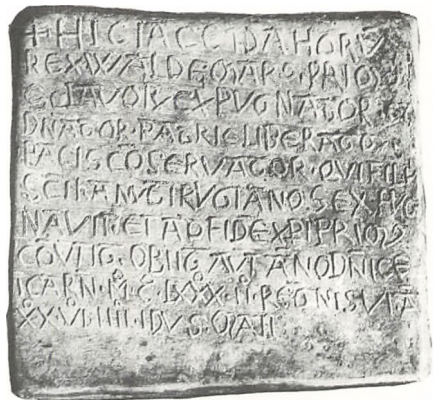 + HIC IACET DANORV
REX WALDEMAR PRIM
SCLAVORV EXPVGNATOR ET
DNATOR · PATRIE LIBERATOR
PACIS COSERVATOR · QVI FILI
SCI KANVTI RVGIANOS EXPVG
NAVIT · ET AD FIDE XPI PRIM
COVTIT · OBIIT AVT ANO DNICE
ICARN · M · C · LXXX · II · REGNI SVI A
XXVI · IIII · IDVS MAII